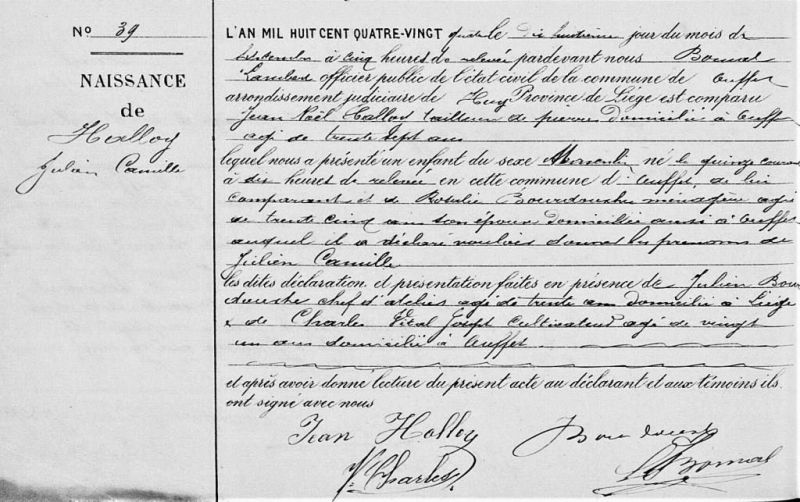 No 39
NAISSANCE
de
Halloy
Julien Camille
L'AN MIL HUIT CENT QUATRE-VINGT le dix huitième jour du mois de
à cinq heures de relevée pardevant nous Bomal
officier public de l'état civil de la commune de Ouffet
arrondissement judiciaire de Huy Province de Liége est comparu
Jean Noël Halloy tailleur de pierres domicilié à Ouffet
agé de trente sept ans
lequel nous a présenté un enfant du sexe Masculin né le quinze courant
à dix heures de relevée en cette commune d'Ouffet, de lui
comparant et de Rosalie Bourdouxhe ménagère agée
de trente cinq ans son épouse domiciliée aussi à Ouffet
auquel il a déclaré vouloir donner les prénoms de
Julien Camille
les dites déclaration et présentation faites en présence de Julien Bour
douxhe chef d'atelier agé de trente ans domicilié à Liége
& de Charles Vital Joseph cultivateur agé de vingt
un ans domicilié à Ouffet
et après avoir donné lecture du présent acte au déclarant et aux témoins ils
ont signé avec nous
Jean Halloy
V Charles
Bomal